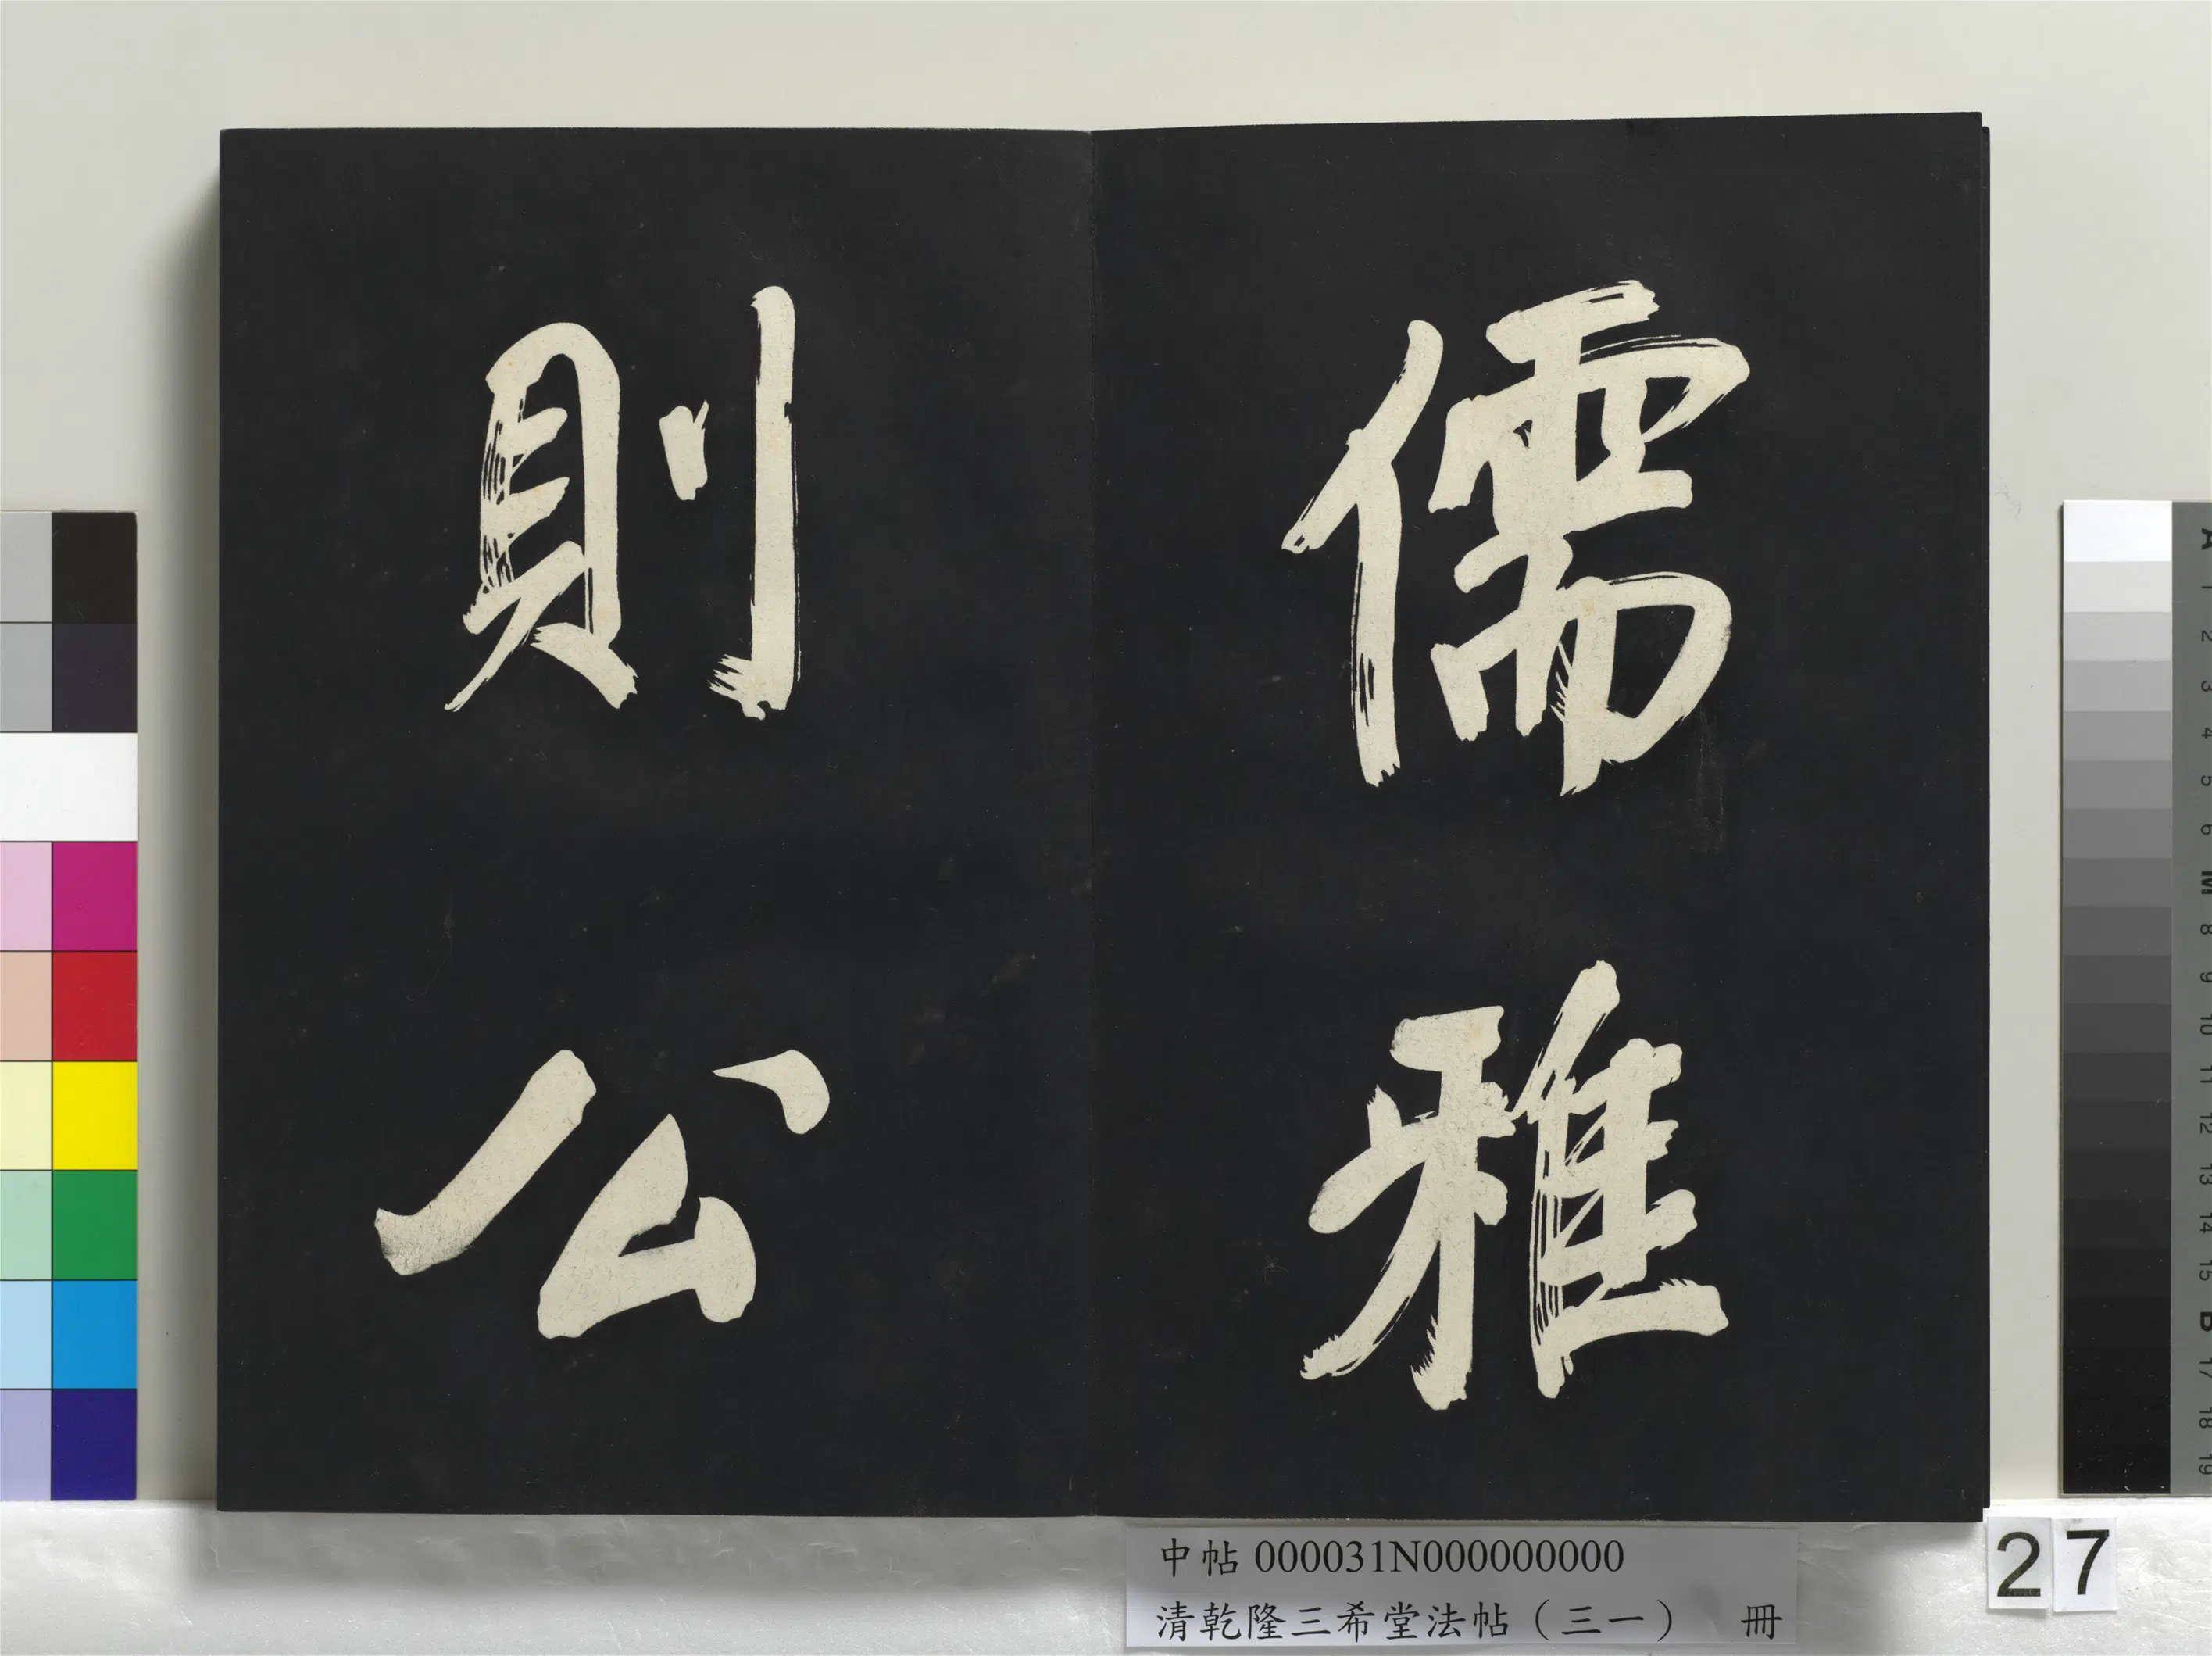 儒雅
則公
中帖 000031N000000000
清乾隆三希堂法帖（三一） 冊
27
A 1 2 3 4 5 6 M 8 9 10 11 12 13 14 15 B 17 18 19